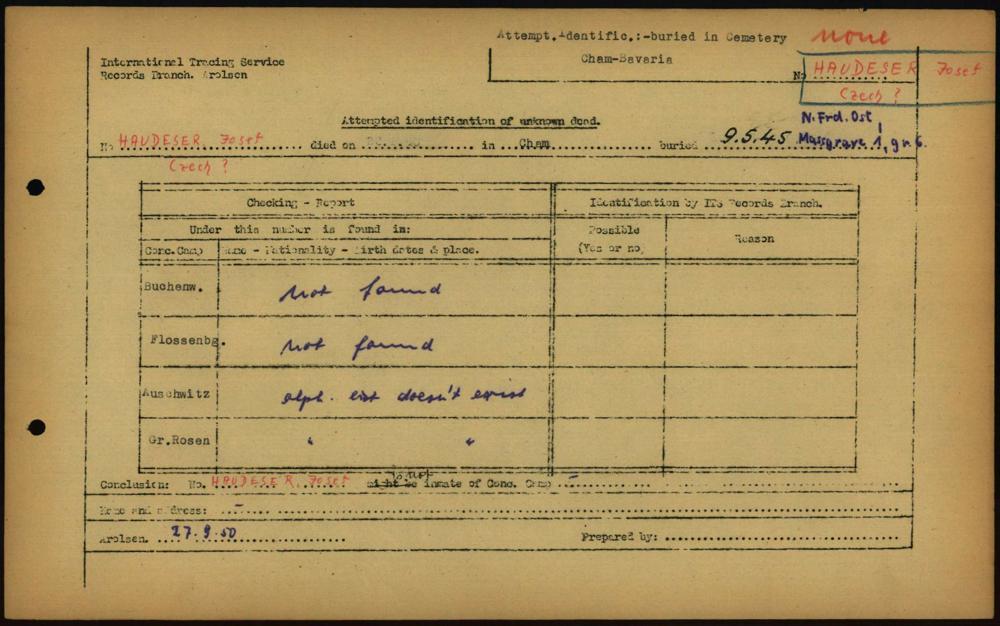 Attempt.identific.:-buried in Cemetery none
International Tracing Service
Records Branch. Arolsen
Cham-Bavaria
No HAUDESER Josef
Czech ?
Attempted identification of unknown dead.
N.Frd.Ost,
No HAUDESER Josef died on in Cham buried 9.5.45 Massgrave 1, gr. 6.
Czech ?
Checking - Report Identification by ITS Records Branch.
Under this number is found in: Possible (Yes or no) Reason
Conc.Camp Name - Nationality - Birth dates & place.
Buchenw. not found
Flossenbg. not found
Auschwitz alph. list doesn't exist
Gr.Rosen " "
Conclusion: No. HAUDESER Josef might be inmate of Conc. Camp -
Name and address: -
Arolsen. 27.9.50 Prepared by: